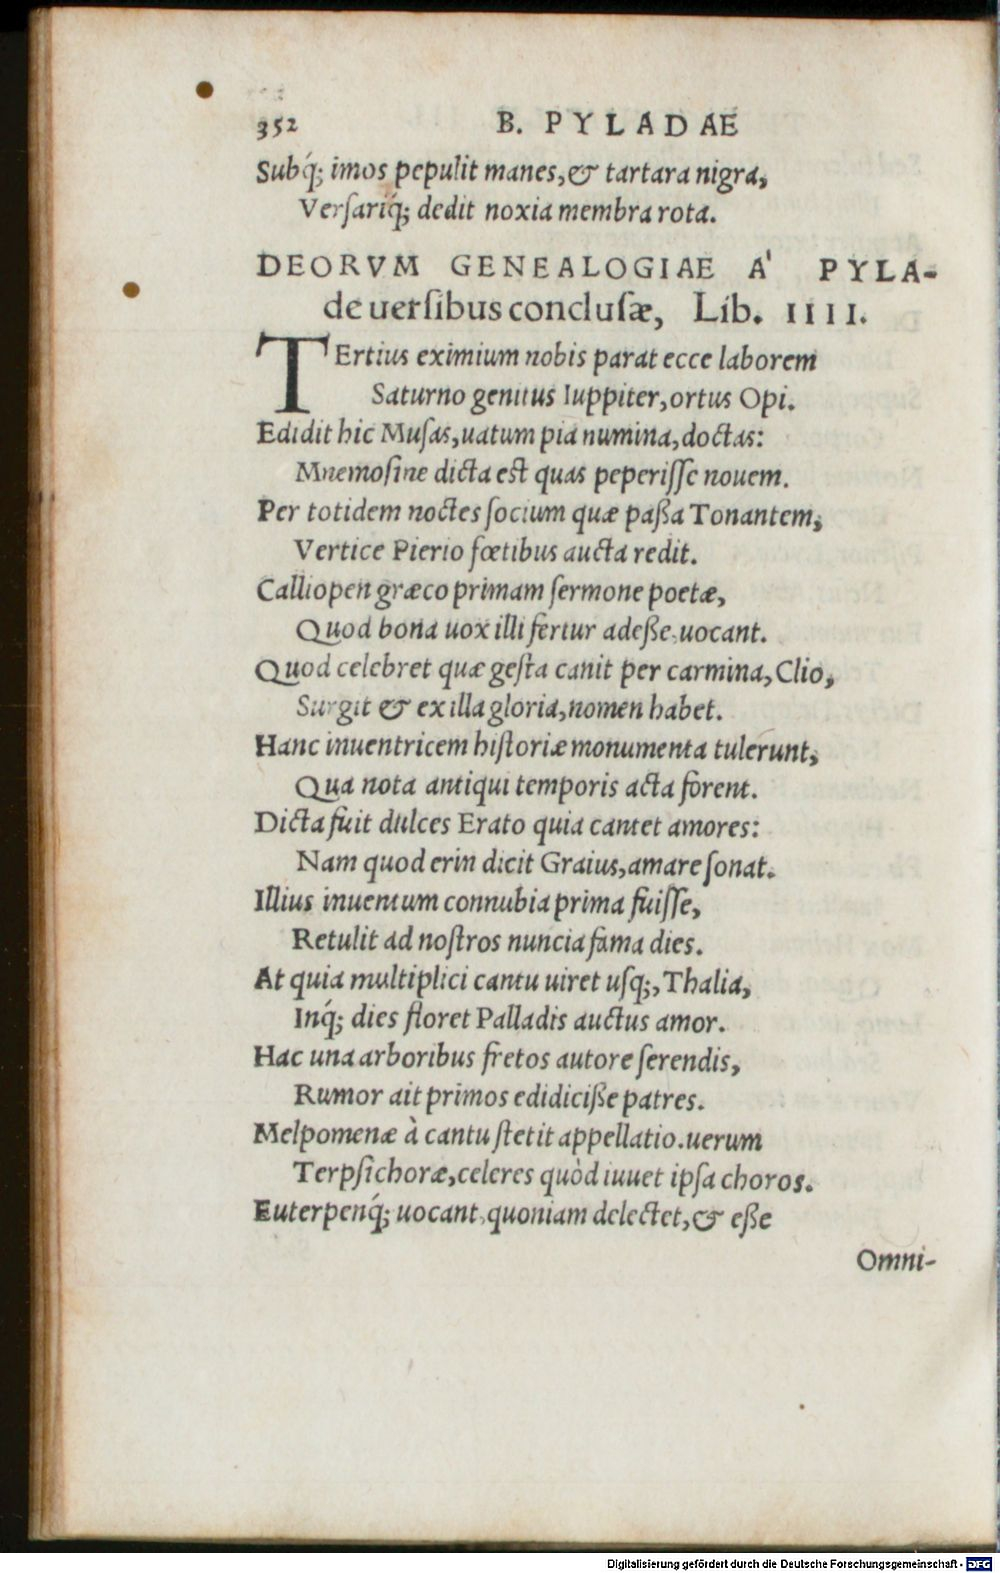 352 B. PYLADAE
Subq́; imos pepulit manes, & tartara nigra,
Verſariq́; dedit noxia membra rota.
DEORVM GENEALOGIAE A' PYLA-
de uerſibus concluſæ, Lib. IIII.
TErtius eximium nobis parat ecce laborem
Saturno genitus Iuppiter, ortus Opi.
Edidit hic Muſas, uatum pia numina, doctas:
Mnemoſine dicta est quas peperiſſe nouem.
Per totidem noctes ſocium quæ paßa Tonantem,
Vertice Pierio fœtibus aucta redit.
Calliopen græco primam ſermone poetæ,
Quod bona uox illi fertur adeße, uocant.
Quod celebret quæ geſta canit per carmina, Clio,
Surgit & ex illa gloria, nomen habet.
Hanc inuentricem hiſtoriæ monumenta tulerunt,
Qua nota antiqui temporis acta forent.
Dicta fuit dulces Erato quia cantet amores:
Nam quod erin dicit Graius, amare ſonat.
Illius inuentum connubia prima fuiſſe,
Retulit ad noſtros nuncia fama dies.
At quia multiplici cantu uiret uſq;, Thalia,
Inq́; dies floret Palladis auctus amor.
Hac una arboribus fretos autore ſerendis,
Rumor ait primos edidiciße patres.
Melpomenæ à cantu ſtetit appellatio. uerum
Terpſichoræ, celeres quòd iuuet ipſa choros.
Euterpenq́; uocant, quoniam delectet, & eße
Omni-
Digitalisierung gefördert durch die Deutsche Forschungsgemeinschaft - DFG